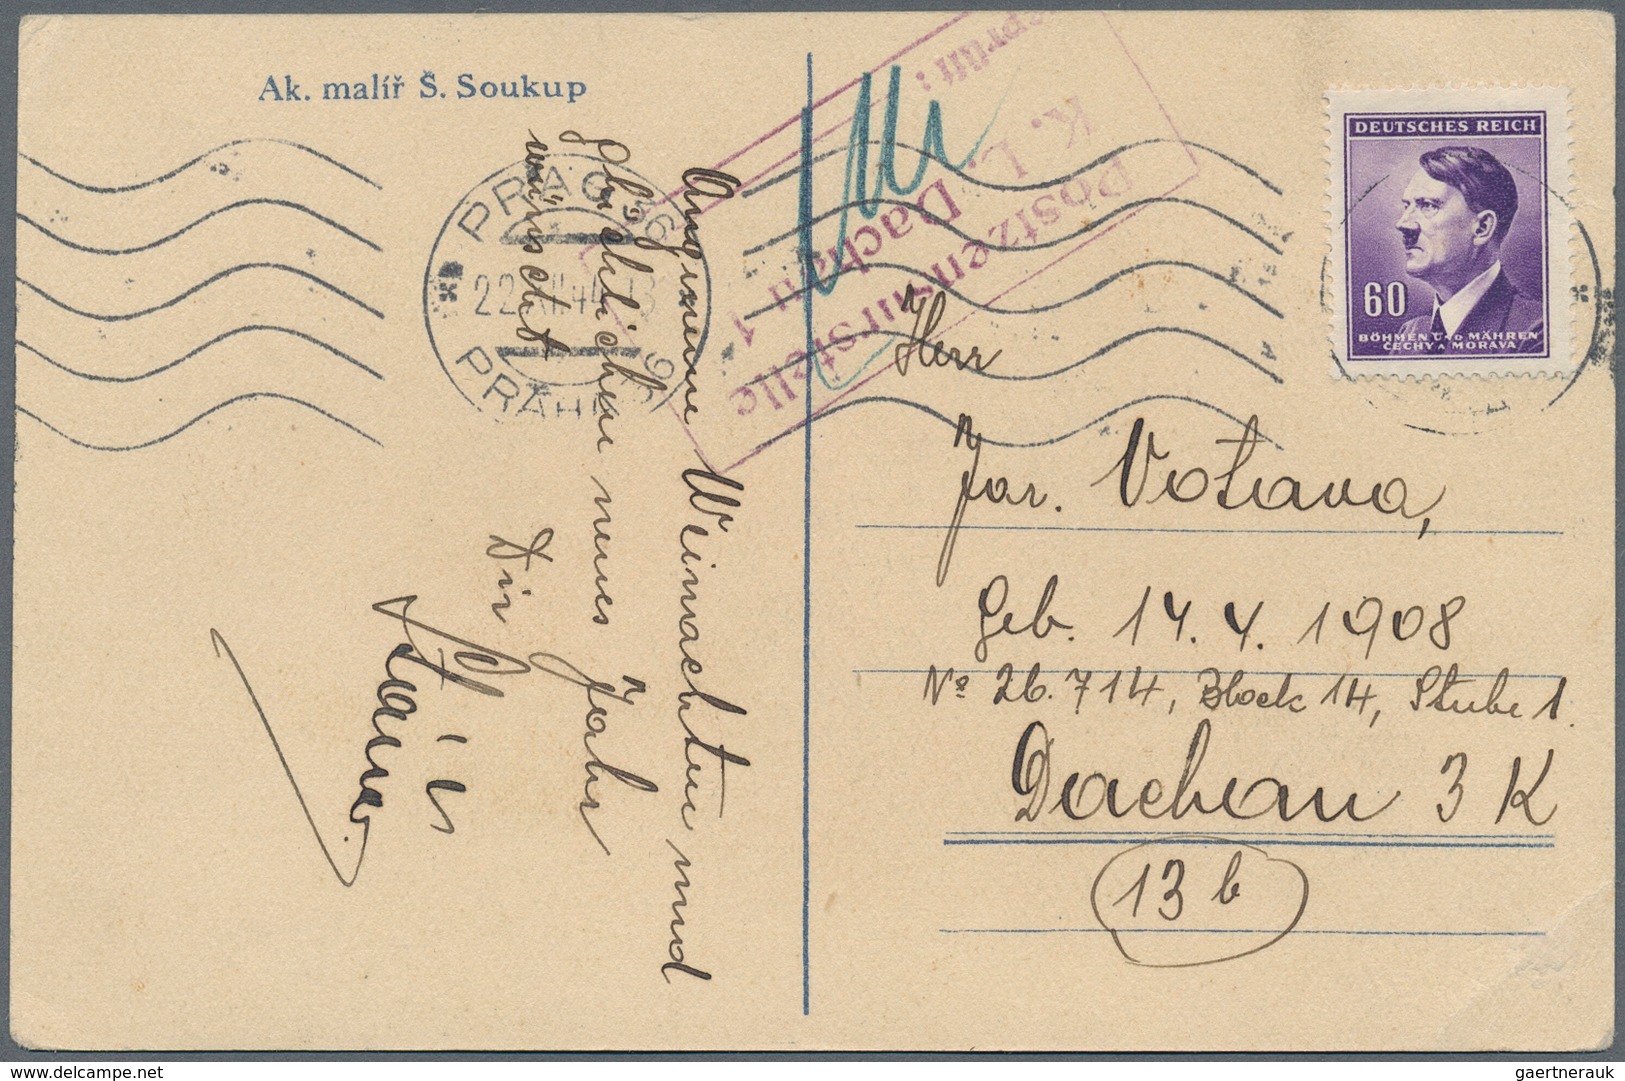 Ak. malíř Š. Soukup
Angenneme Weinachten und
glücklichen neues Jahr
wünscht
Dir
PRAG 36
22.XII.44
PRAHA 36
Postzensurstelle
K. L. Dachau 1
geprüft:
DEUTSCHES REICH
60
BÖHMEN UND MÄHREN
ČECHY A MORAVA
Herr
Jar. Votava,
Geb. 14. 4. 1908
Nº 26.714, Block 14, Stube 1.
Dachau 3 K
13 b
www.ehstamps.com
gaertnerauk